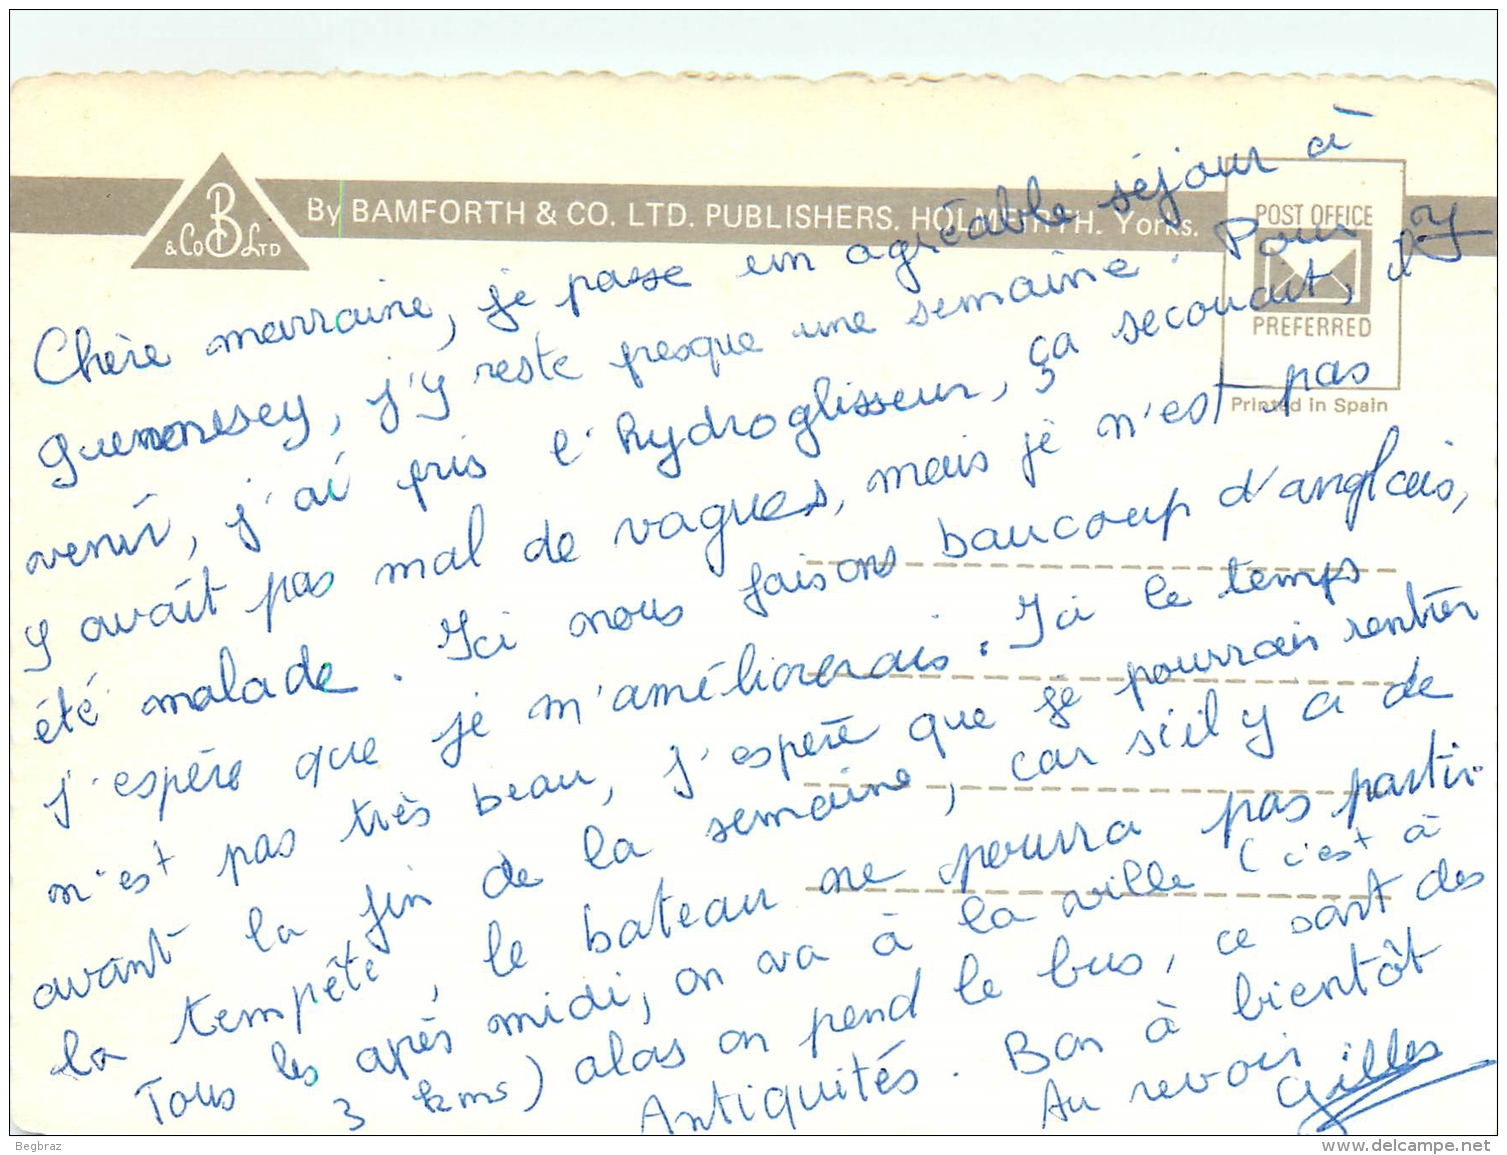 B
& Co Ltd
By BAMFORTH & CO. LTD. PUBLISHERS. HOLMFIRTH. Yorks.
POST OFFICE
PREFERRED
Printed in Spain
Chère marraine, je passe un agréable séjour à
guernnesey, j'y reste presque une semaine. Pour y
venir, j'ai pris l'hydroglisseur, ça secouait, il
y avait pas mal de vagues, mais je n'est pas
été malade. Ici nous faisons baucoup d'anglais,
j'espère que je m'améliorerais. Ici le temps
n'est pas très beau, j'espère que je pourrais rentrer
avant la fin de la semaine, car s'il y a de
la tempête, le bateau ne pourra pas partir
Tous les après midi, on va à la ville (c'est à
3 kms) alas on pend le bus, ce sont des
Antiquités. Bon à bientôt
Au revoir
Gilles
Begbraz
www.delcampe.net